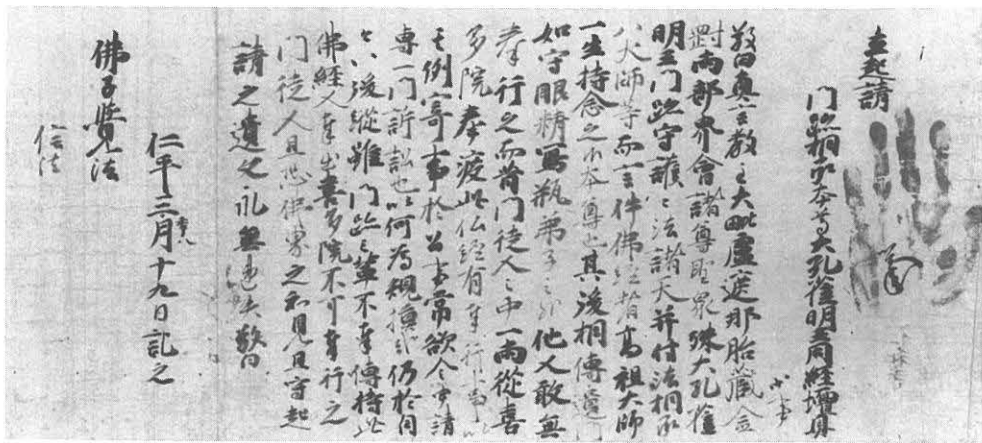 立起請
門跡相承本尊大孔雀明王同経壇具
敬白真言教主大毗盧遮那胎蔵金
剛両部界會諸尊聖衆殊大孔雀
明王門跡守護護法諸天并付法相承
八大師等而言件佛経者高祖大師
一生持念之小本尊也其後相傳
如守眼精寫瓶弟子之外他人敢無
奉行之而背門徒人之中一両從喜
多院奉渡此仏経有奉行事以
其例寄事於公事常欲令申請
専一門訴訟也以何為規摸哉仍於自
今以後縱雖門跡之輩不奉傳持此
佛経人奉出喜多院不可奉行之
門徒人且恐佛界之知見且守起
請之遺文永無違失敬白
仁平三月十九日記之
佛子覺法
信法